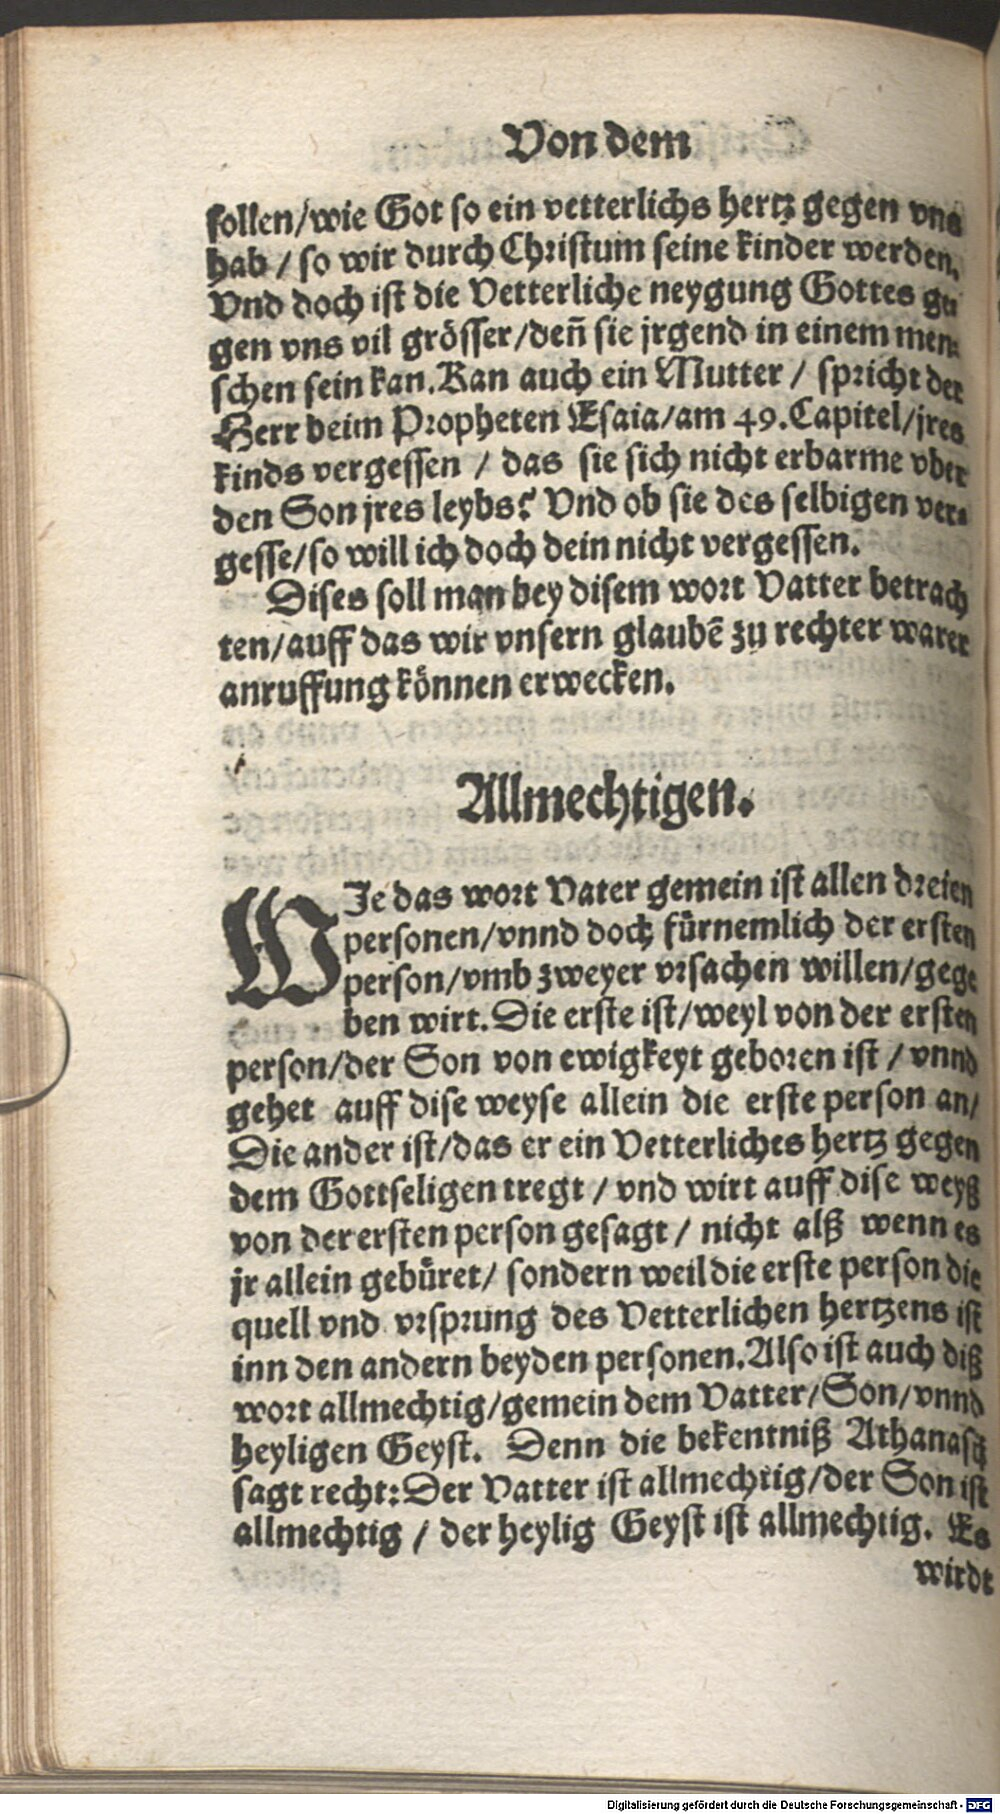 Von dem
sollen/wie Got so ein vetterlichs hertz gegen vns
hab / so wir durch Christum seine kinder werden.
Vnd doch ist die Vetterliche neygung Gottes ge
gen vns vil grösser/deñ sie jrgend in einem men-
schen sein kan. Kan auch ein Mutter / spricht der
Herr beim Propheten Esaia/am 49. Capitel/jres
kinds vergessen / das sie sich nicht erbarme vber
den Son jres leybs? Vnd ob sie des selbigen ver-
gesse/so will ich doch dein nicht vergessen.
Dises soll man bey disem wort Vatter betrach
ten/auff das wir vnsern glaubē zu rechter warer
anruffung können erwecken.
Allmechtigen.
WJe das wort Vater gemein ist allen dreien
personen/vnnd doch fürnemlich der ersten
person/vmb zweyer vrsachen willen/gege
ben wirt. Die erste ist/weyl von der ersten
person/der Son von ewigkeyt geboren ist / vnnd
gehet auff dise weyse allein die erste person an/
Die ander ist/das er ein Vetterliches hertz gegen
dem Gottseligen tregt / vnd wirt auff dise weyß
von der ersten person gesagt / nicht alß wenn es
jr allein gebüret/ sondern weil die erste person die
quell vnd vrsprung des Vetterlichen hertzens ist
inn den andern beyden personen. Also ist auch diß
wort allmechtig/gemein dem Vatter/Son/vnnd
heyligen Geyst. Denn die bekentniß Athanasij
sagt recht: Der Vatter ist allmechtig/der Son ist
allmechtig / der heylig Geyst ist allmechtig. Es
wirdt
Digitalisierung gefördert durch die Deutsche Forschungsgemeinschaft - DFG